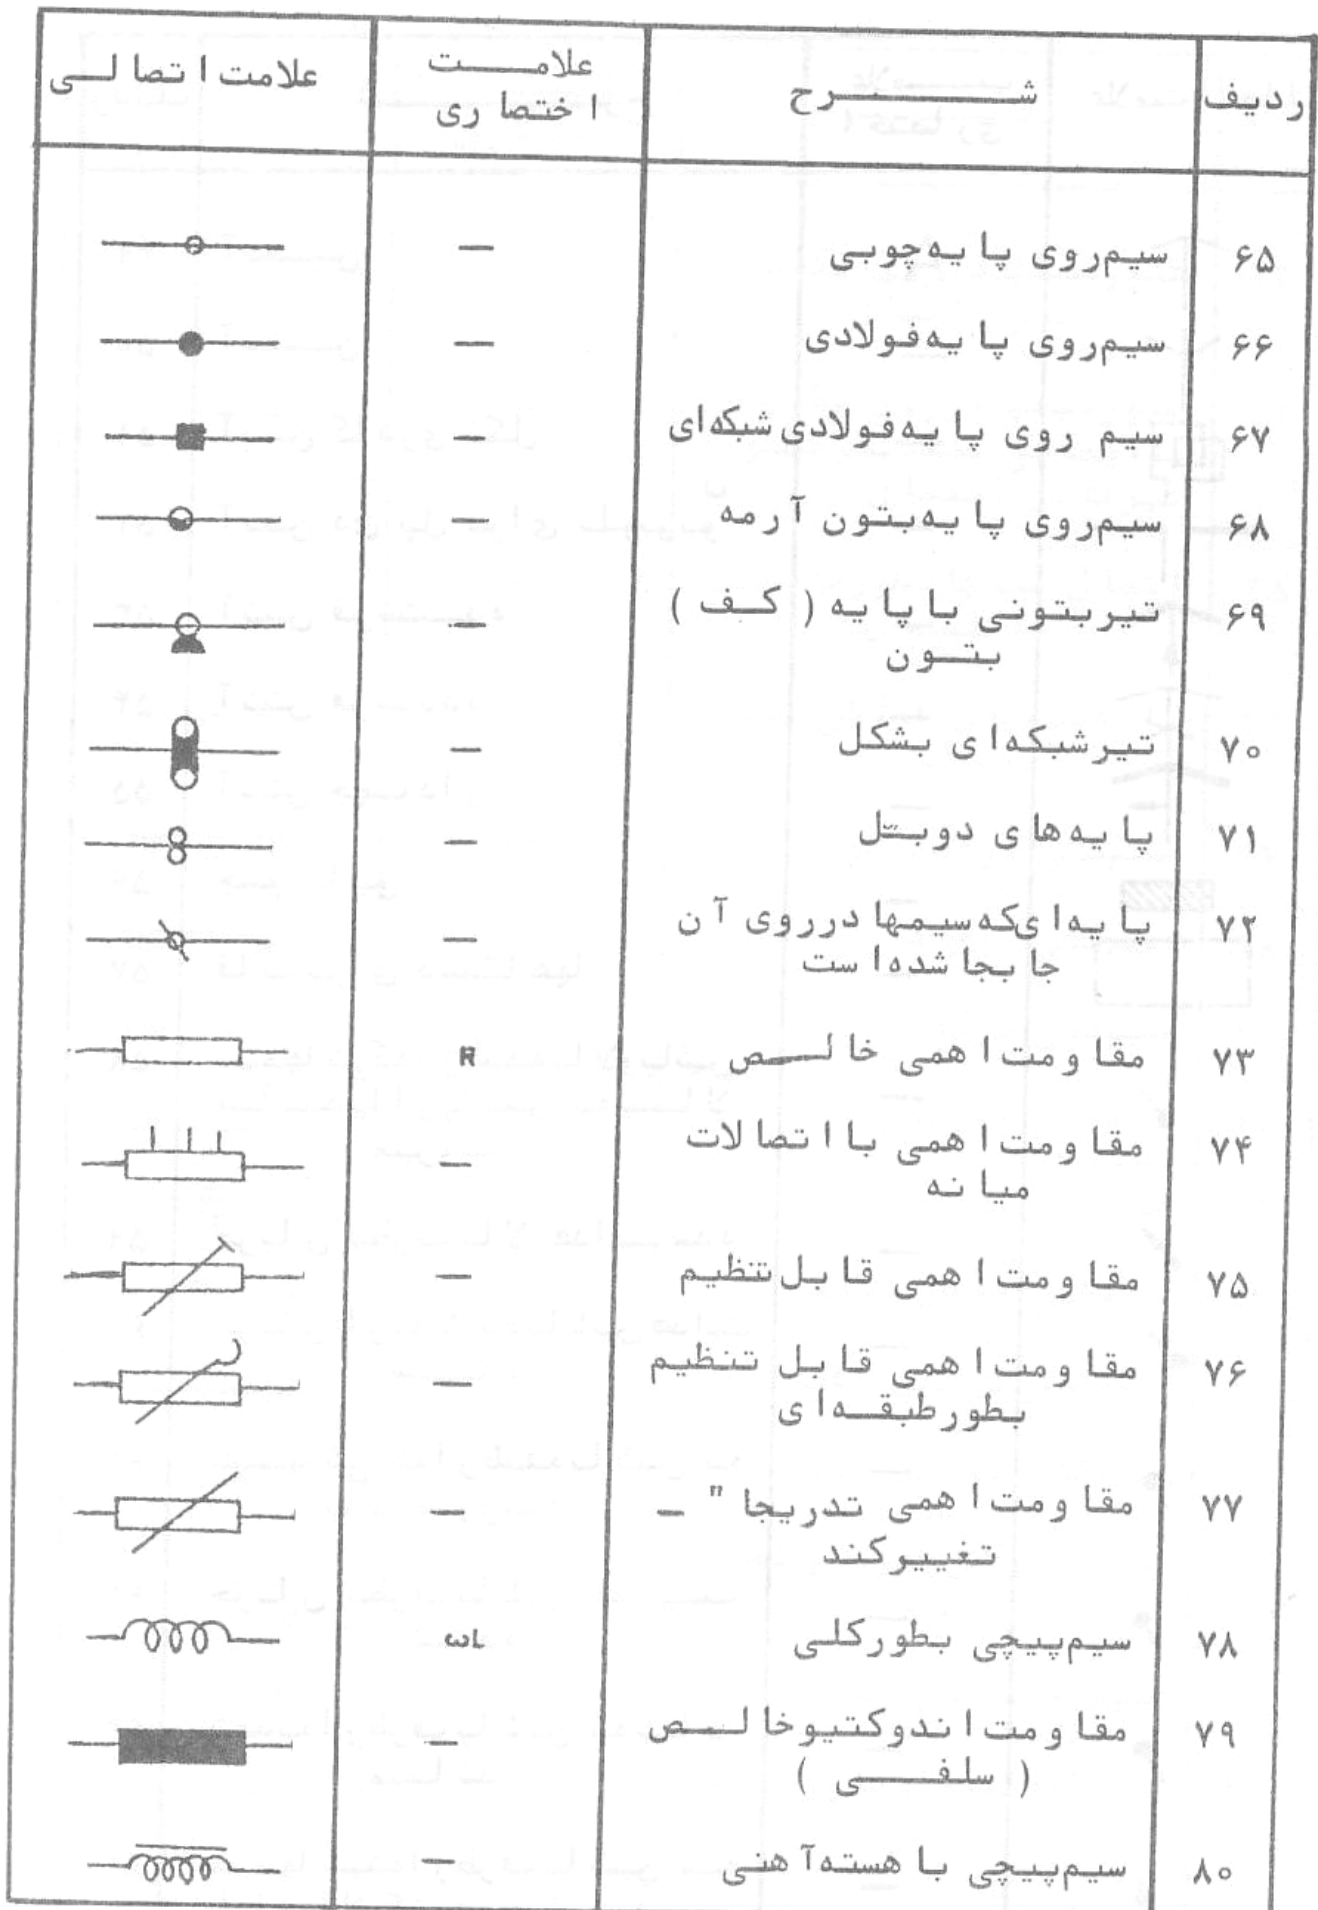 ردیف
شـــــرح
علامـــت
اختصاری
علامت اتصالـی
۶۵ سیم‌روی پایه‌چوبی —
۶۶ سیم‌روی پایه‌فولادی —
۶۷ سیم روی پایه‌فولادی شبکه‌ای —
۶۸ سیم‌روی پایه‌بتون آرمه —
۶۹ تیربتونی با پایه ( کـف ) —
بتـون
۷۰ تیرشبکه‌ای بشکل —
۷۱ پایه‌های دوبـل —
۷۲ پایه‌ای‌که‌سیمها درروی آن —
جابجا شده‌است
۷۳ مقاومت اهمی خالـص R
۷۴ مقاومت اهمی با اتصالات —
میانه
۷۵ مقاومت اهمی قابل‌تنظیم —
۷۶ مقاومت اهمی قابل تنظیم —
بطورطبقـه‌ای
۷۷ مقاومت اهمی تدریجا " — —
تغییرکند
۷۸ سیم‌پیچی بطورکلی ωL
۷۹ مقاومت اندوکتیوخالـص —
( سلفــی )
۸۰ سیم‌پیچی با هسته‌آهنی —